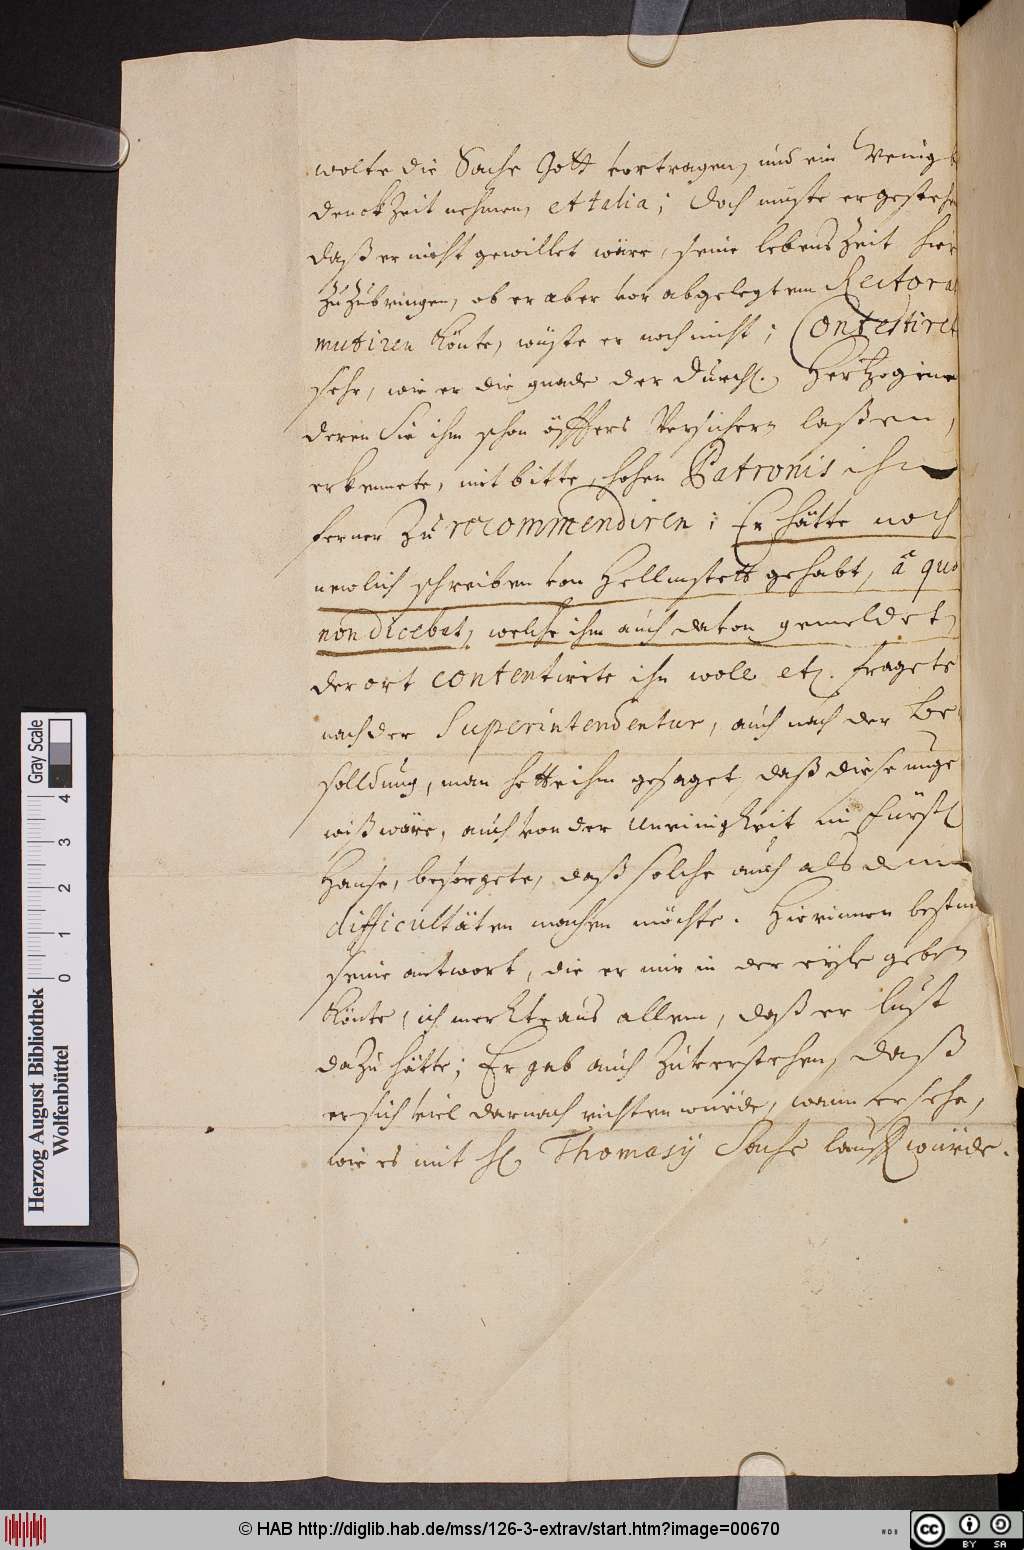 wolte die Sache Gott vortragen, und ein wenig
denckZeit nehmen, et talia; doch muste er gestehen
daß er nicht gewillet wäre, seine lebensZeit hie
ZuZubringen, ob er aber vor abgelegtem Rectorat
mutiren könte, wüste er noch nicht; Contestiret
sehr, wie er die gnade der Durchl. Hertzogin
deren Sie ihm schon öffters versichern laßen,
erkennete, mit bitte, hohen Patronis ihn
ferner Zu recommendiren; Er hätte noch
newlich schreiben von Hellmstett gehabt, â quo
non dicebat, welche ihm auch davon gemeldet,
der ort contentirte ihn woll etc. fragete
nach der Superintendentur, auch nach der be
solldung, man hette ihm gesaget, daß diese unge
wiß wäre, auch von der Uneinigkeit im Fürstl
Hause, besorgete, daß solche auch als dann
difficultäten machen möchte. Hierinnen bestund
seine antwort, die er mir in der eyle geben
könte, ich merkte aus allem, daß er lust
daZu hätte; Er gab auch Zuverstehen, daß
er sich viel darnach richten würde, wann er sehe,
wie es mit H. Thomasij Sache lauffen würde.
Herzog August Bibliothek
Wolfenbüttel
0 1 2 3 4
Gray Scale
© HAB http://diglib.hab.de/mss/126-3-extrav/start.htm?image=00670
cc BY SA